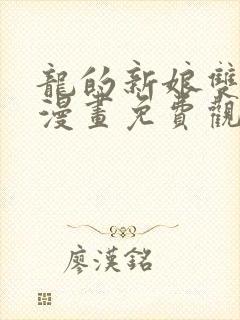 龍的新娘雙
漫畫免費觀
廖漢銘